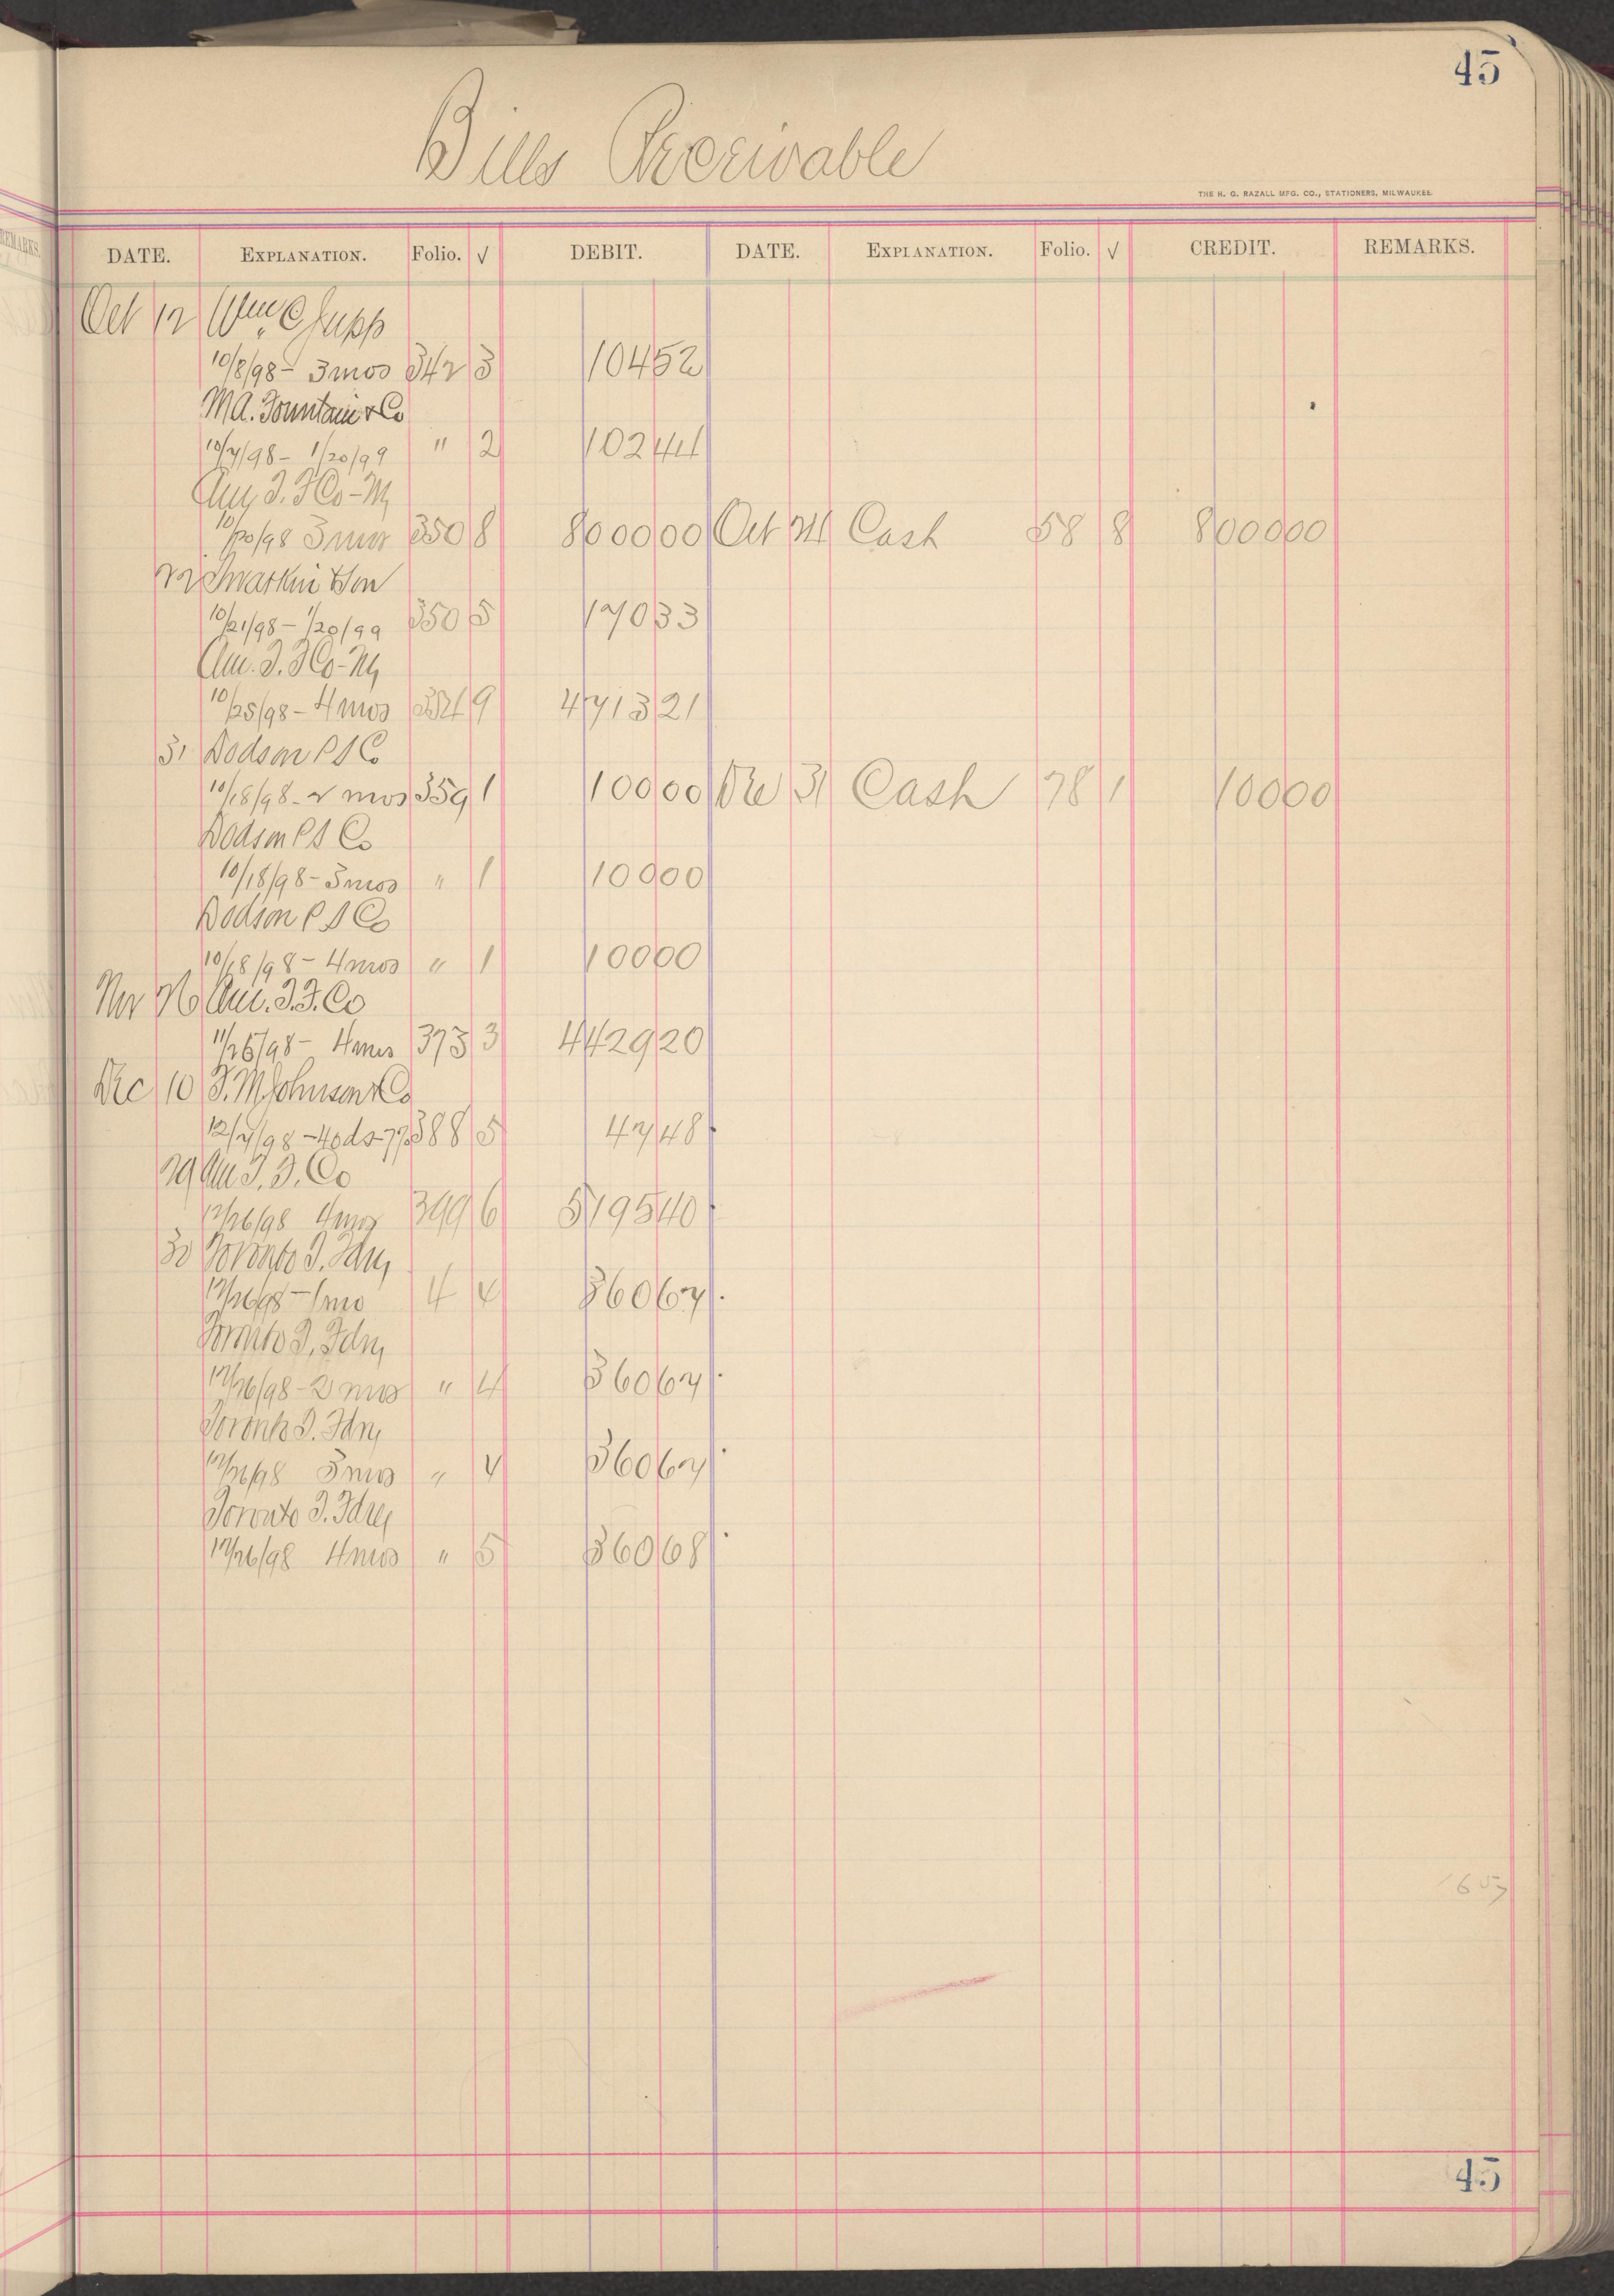 45
Bills Receivable
THE H. G. RAZALL MFG. CO., STATIONERS, MILWAUKEE.
DATE. EXPLANATION. Folio. √ DEBIT. DATE. EXPLANATION. Folio. √ CREDIT. REMARKS.
Oct 12 Wm C Jupp
10/8/98 - 3 mos 342 3 104 52
M A. Fountain & Co
10/7/98 - 1/20/99 " 2 102 44
Am T. F Co - My
10/20/98 3 mos 350 8 8000 00 Oct 24 Cash 58 8 8000 00
22 & Son
10/21/98 - 1/20/99 350 5 170 33
Am. T. F Co - My
10/25/98 - 4 mos 354 9 4713 21
31 Dodson P S Co
10/18/98 - 2 mos 359 1 100 00 Dec 31 Cash 78 1 100 00
Dodson P S Co
10/18/98 - 3 mos " 1 100 00
Dodson P S Co
10/18/98 - 4 mos " 1 100 00
Nov 26 Am. T. F. Co
11/25/98 - 4 mos 373 3 4429 20
Dec 10 T. M Johnson & Co
12/7/98 - 40 ds - 7% 388 5 47 48
29 Am T. F. Co
12/26/98 4 mos 399 6 5195 40
30 Toronto T. Fdry
12/26/98 - 1 mo 4 4 360 67
Toronto T. Fdry
12/26/98 - 2 mos " 4 360 67
Toronto T. Fdry
12/26/98 3 mos " 4 360 67
Toronto T. Fdry
12/26/98 4 mos " 5 360 68
45